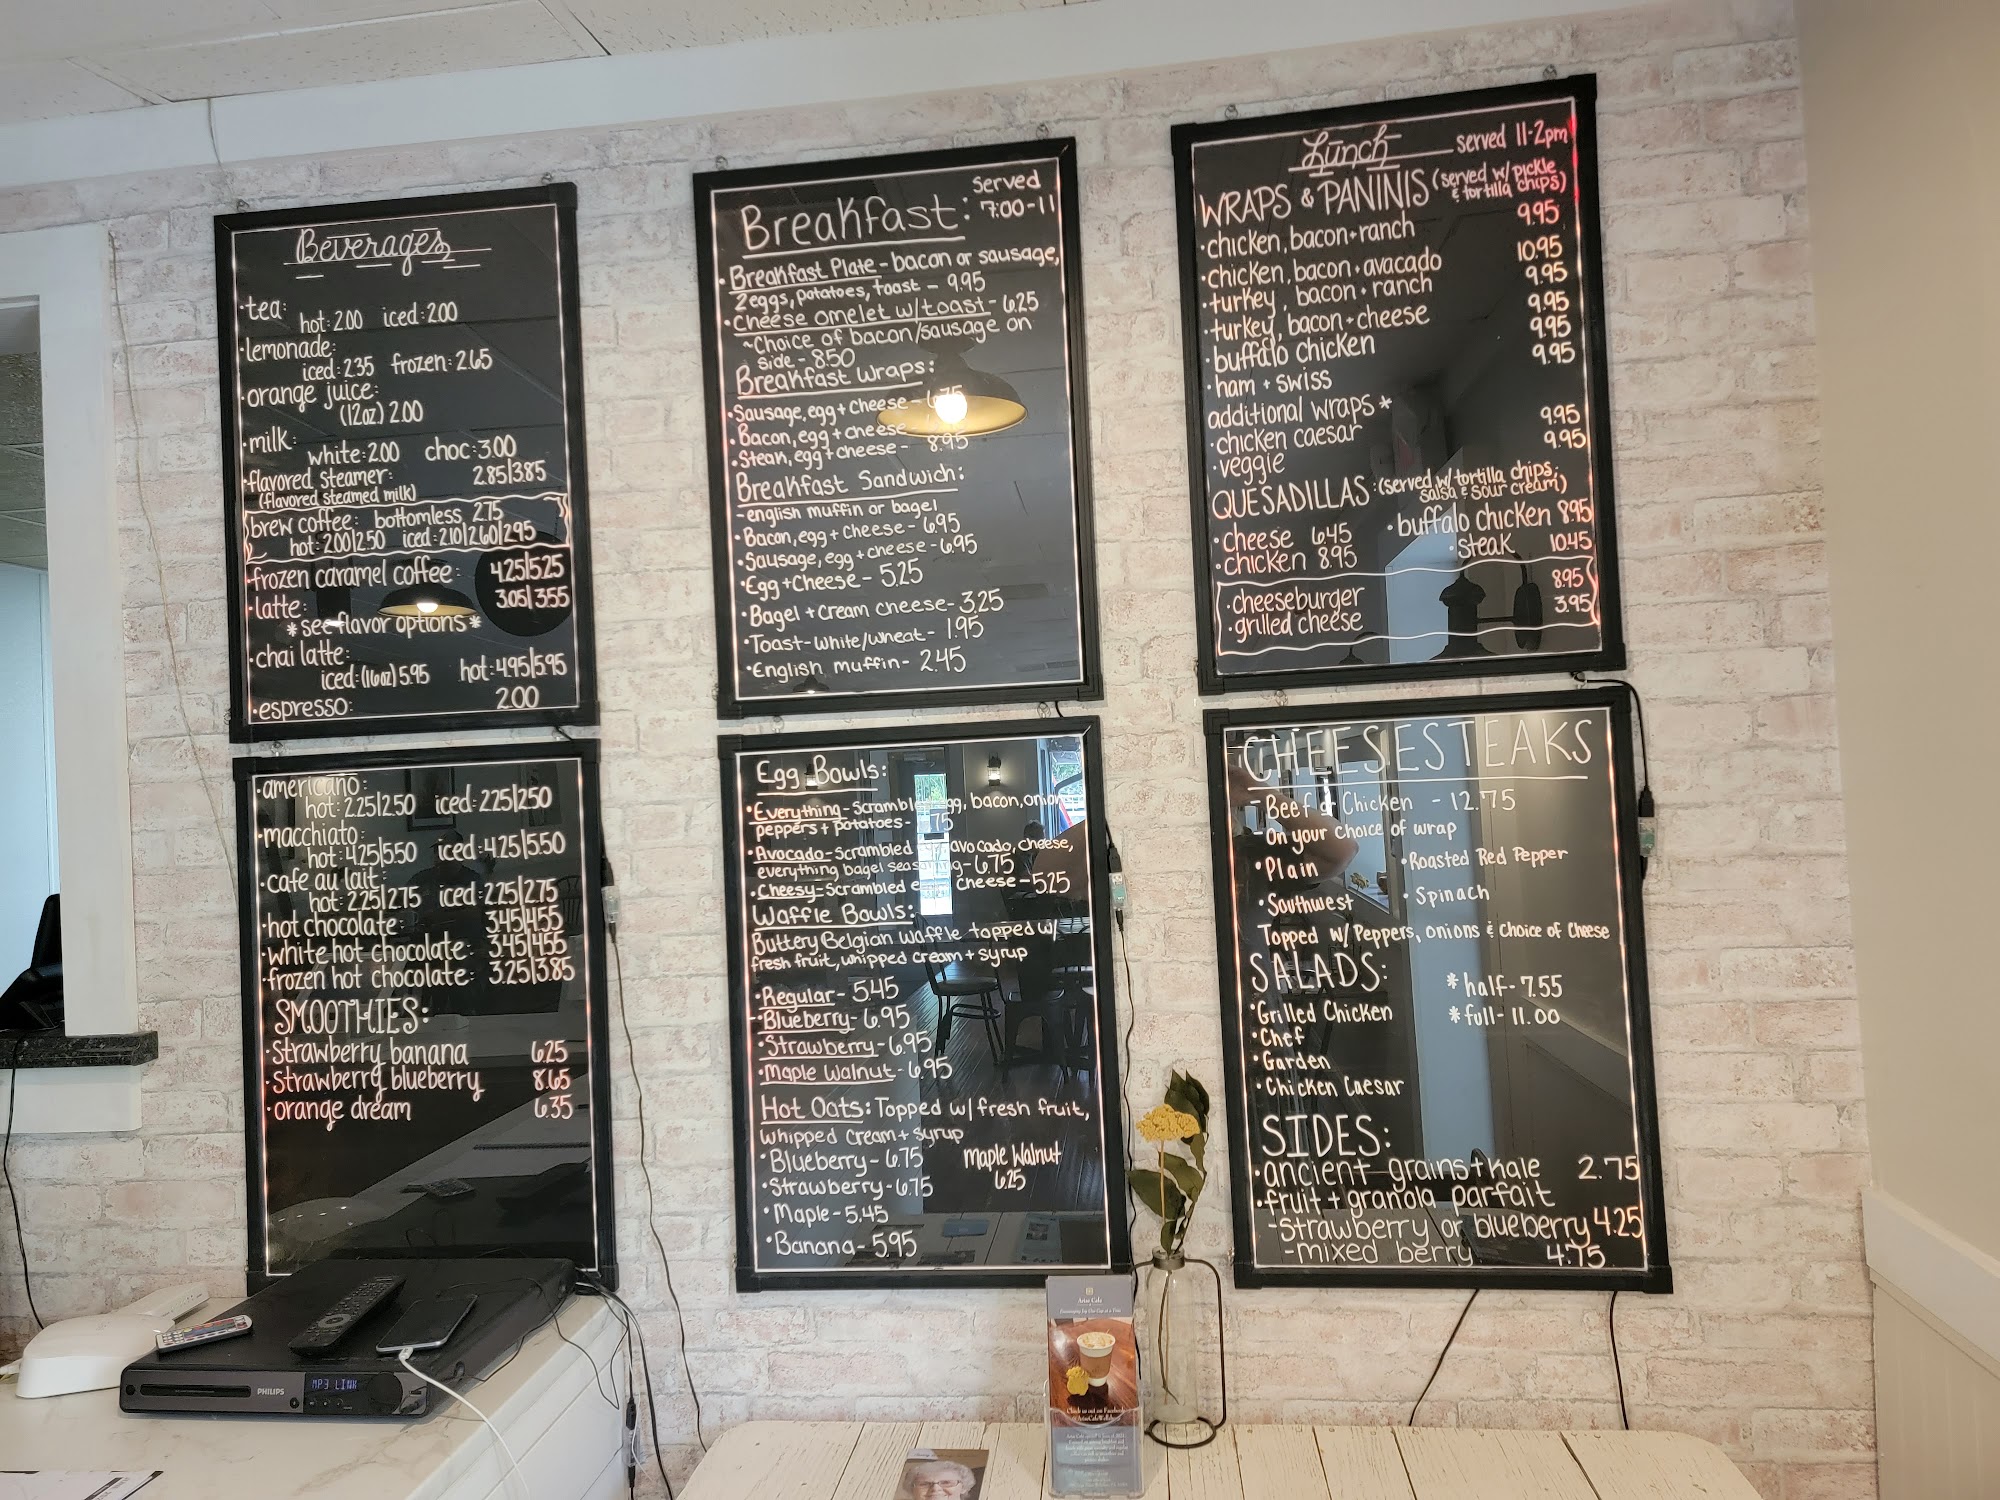 Beverages
·tea:
hot:2.00 iced:2.00
·lemonade:
iced:2.35 frozen:2.65
·orange juice:
(12oz) 2.00
·milk:
white:2.00 choc:3.00
·flavored steamer: 2.85|3.85
(flavored steamed milk)
brew coffee: bottomless 2.75
hot: 2.00|2.50 iced:2.10|2.60|2.95
·frozen caramel coffee: 4.25|5.25
·latte: 3.05|3.55
*see flavor options*
·chai latte:
iced:(16oz) 5.95 hot:4.95|5.95
·espresso: 2.00
·americano:
hot:2.25|2.50 iced:2.25|2.50
·macchiato:
hot:4.25|5.50 iced:4.25|5.50
·cafe au lait:
hot:2.25|2.75 iced:2.25|2.75
·hot chocolate: 3.45|4.55
·white hot chocolate: 3.45|4.55
·frozen hot chocolate: 3.25|3.85
SMOOTHIES:
·strawberry banana 6.25
·strawberry blueberry 8.65
·orange dream 6.35
Breakfast: served 7:00-11
·Breakfast Plate - bacon or sausage,
2 eggs, potatoes, toast - 9.95
·Cheese omelet w/toast - 6.25
~Choice of bacon/sausage on
side - 8.50
Breakfast Wraps:
·Sausage, egg + cheese - 6.75
·Bacon, egg + cheese
·Steak, egg + cheese - 8.95
Breakfast Sandwich:
-english muffin or bagel
·Bacon, egg + cheese - 6.95
·Sausage, egg + cheese - 6.95
·Egg + Cheese - 5.25
·Bagel + Cream cheese - 3.25
·Toast-white/wheat - 1.95
·English muffin - 2.45
Egg Bowls:
·Everything - Scrambled egg, bacon, onion
peppers + potatoes - 75
·Avocado - Scrambled avocado, cheese,
everything bagel seasoning - 6.75
·Cheesy - Scrambled cheese - 5.25
Waffle Bowls:
Buttery Belgian Waffle topped w/
fresh fruit, whipped cream + syrup
·Regular - 5.45
·Blueberry - 6.95
·Strawberry - 6.95
·Maple Walnut - 6.95
Hot Oats: Topped w/ fresh fruit,
whipped cream + syrup
·Blueberry - 6.75 maple Walnut
·Strawberry - 6.75 6.25
·Maple - 5.45
·Banana - 5.95
Lunch served 11-2pm
WRAPS & PANINIS (served w/ pickle
& tortilla chips)
·chicken, bacon + ranch 9.95
·chicken, bacon + avacado 10.95
·turkey, bacon + ranch 9.95
·turkey, bacon + cheese 9.95
·buffalo chicken 9.95
·ham + swiss 9.95
additional wraps *
·chicken caesar 9.95
·veggie 9.95
QUESADILLAS: (served w/ tortilla chips,
salsa & sour cream)
·cheese 6.45 ·buffalo chicken 8.95
·chicken 8.95 ·steak 10.45
·cheeseburger 8.95
·grilled cheese 3.95
CHEESESTEAKS
-Beef & Chicken - 12.75
-On your choice of wrap
·Plain ·Roasted Red Pepper
·Southwest ·Spinach
Topped w/ Peppers, onions & choice of Cheese
SALADS: *half- 7.55
·Grilled Chicken *full- 11.00
·Chef
·Garden
·Chicken Caesar
SIDES:
·ancient grains + kale 2.75
·fruit + granola parfait
-strawberry or blueberry 4.25
-mixed berry 4.75
PHILIPS
MP3 LINK
Arise Cafe